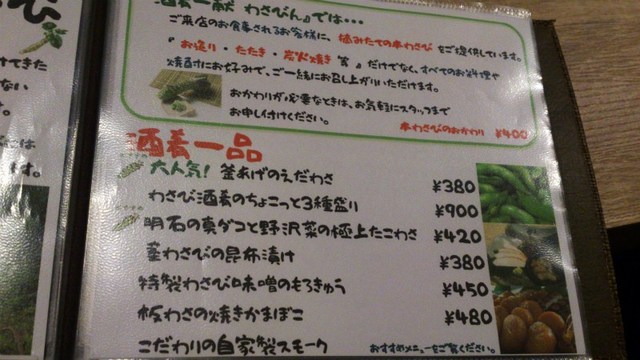 酒肴一献 わさびん。では・・・
ご来店のお食事されるお客様に、摘みたての本わさび をご提供しています。
『お造り・たたき・炭火焼き 等』だけでなく、すべてのお料理や
焼酎にお好みで、ご一緒にお召し上がりいただけます。
おかわりが必要なときは、お気軽にスタッフまで
お申し付けください。
本わさびのおかわり ¥400
酒肴一品
おすすめ 大人気! 釜あげのえだわさ ¥380
わさび酒肴のちょこっと3種盛り ¥900
おすすめ 明石の真ダコと野沢菜の極上たこわさ ¥420
茎わさびの昆布漬け ¥380
特製わさび味噌のもろきゅう ¥450
板わさの焼きかまぼこ ¥480
こだわりの自家製スモーク おすすめメニューをご覧ください。
び
けてきた
ない
は
す。